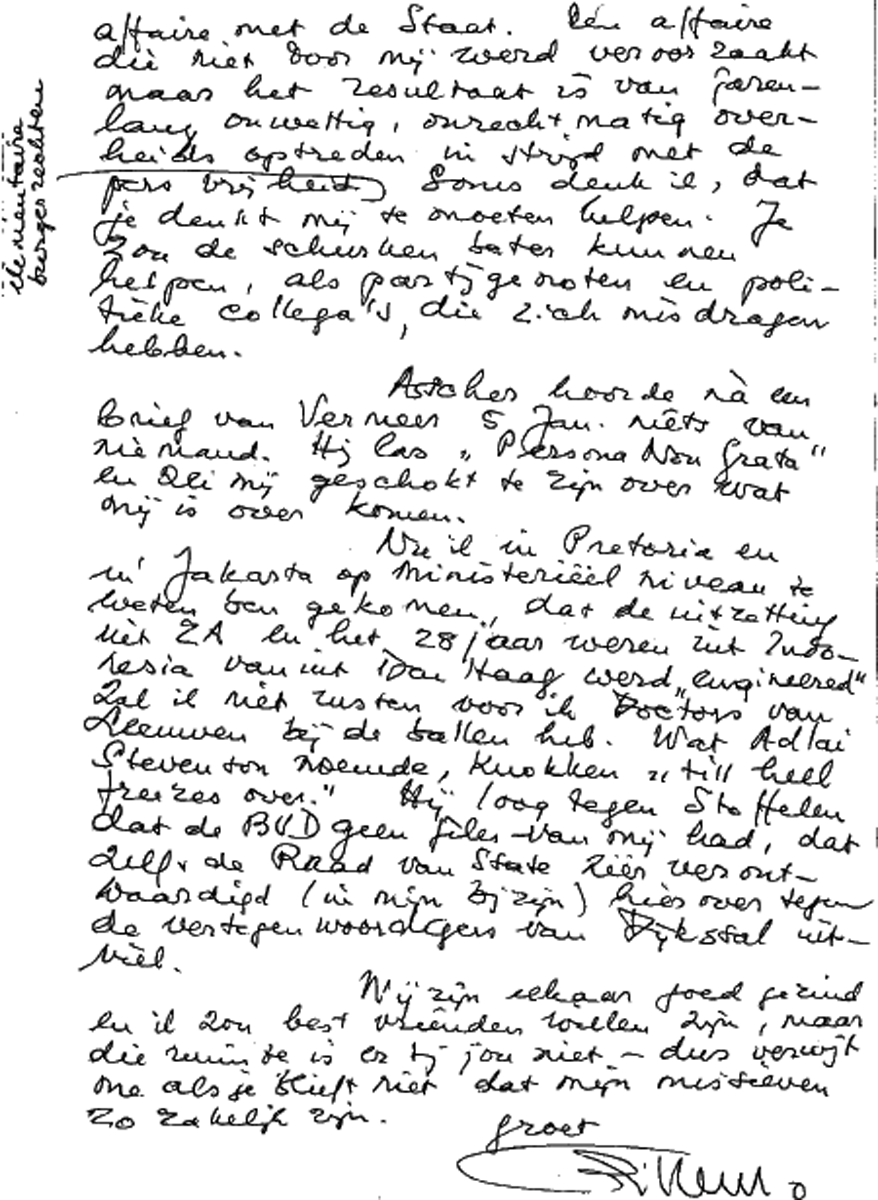 affaire met de Staat. Een affaire
die niet door mij werd veroorzaakt
maar het resultaat is van jaren-
lang onwettig, onrechtmatig over-
heids optreden in strijd met de
pers vrijheid) Soms denk ik, dat
je denkt mij te moeten helpen. Je
zou de schurken beter kunnen
helpen, als partijgenoten en poli-
tieke collega's, die zich misdragen
hebben.
elementaire
burgerrechten
Asscher hoorde nà een
brief van Vermeer 5 Jan. niets van
niemand. Hij las „Persona Non Grata"
en zei mij geschokt te zijn over wat
mij is over komen.
Nu ik in Pretoria en
in Jakarta op ministerieel niveau te
weten ben gekomen, dat de uitzetting
uit ZA en het 28 jaar weren uit Indo-
nesia vanuit Den Haag werd „engineered"
zal ik niet rusten voor ik Doctors van
Leeuwen bij de ballen heb. Wat Adlai
Stevenson noemde, knokken „till hell
freezes over." Hij loog tegen Stoffelen
dat de BVD geen files van mij had, dat
zelfs de Raad van State zéér veront-
waardigd (in mijn bijzijn) hier over tegen
de vertegenwoordigers van Dijkstal uit-
viel.
Wij zijn elkaar goed gezind
en ik zou best vrienden willen zijn, maar
die ruimte is er bij jou niet – dus verwijt
me alsjeblieft niet dat mijn missieven
zo zakelijk zijn.
groet
Willem